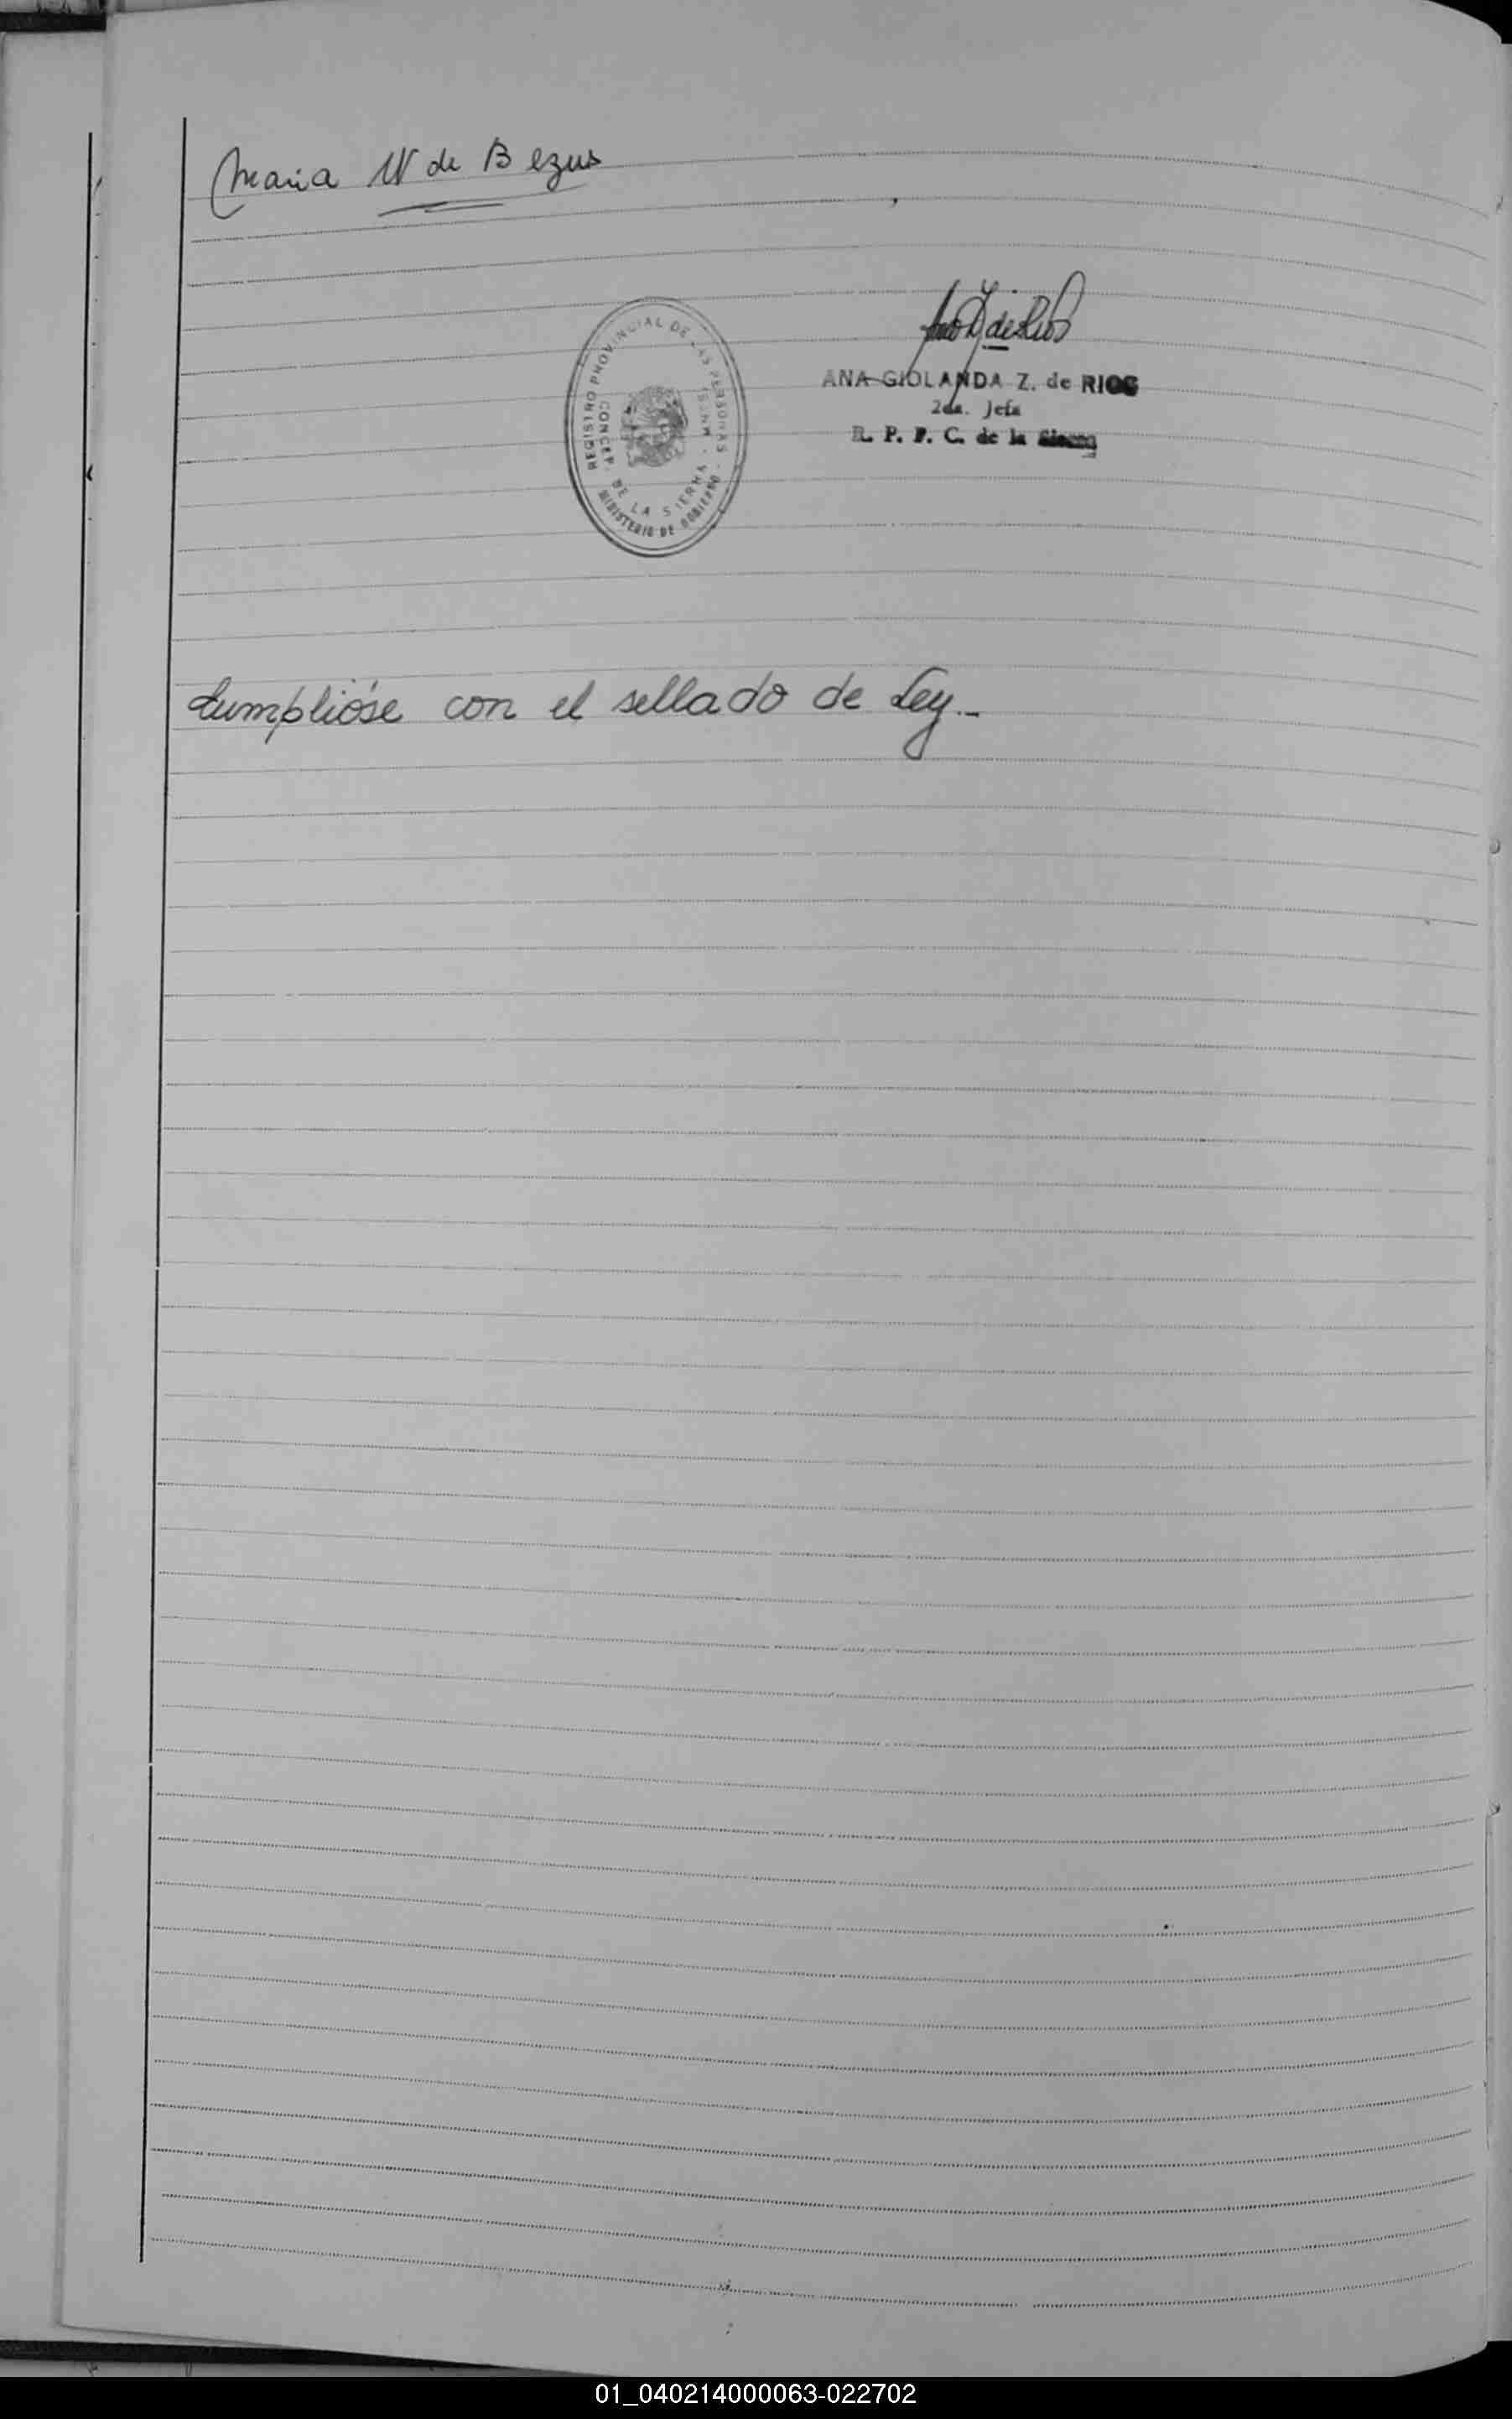 Maria W de Bezus
REGISTRO PROVINCIAL DE LAS PERSONAS
CONCEP. DE LA SIERRA - MNES.
MINISTERIO DE GOBIERNO
ANA GIOLANDA Z. de RIOS
2da. Jefa
R. P. P. C. de la Sierra
Cumplióse con el sellado de Ley.-
01_040214000063-022702